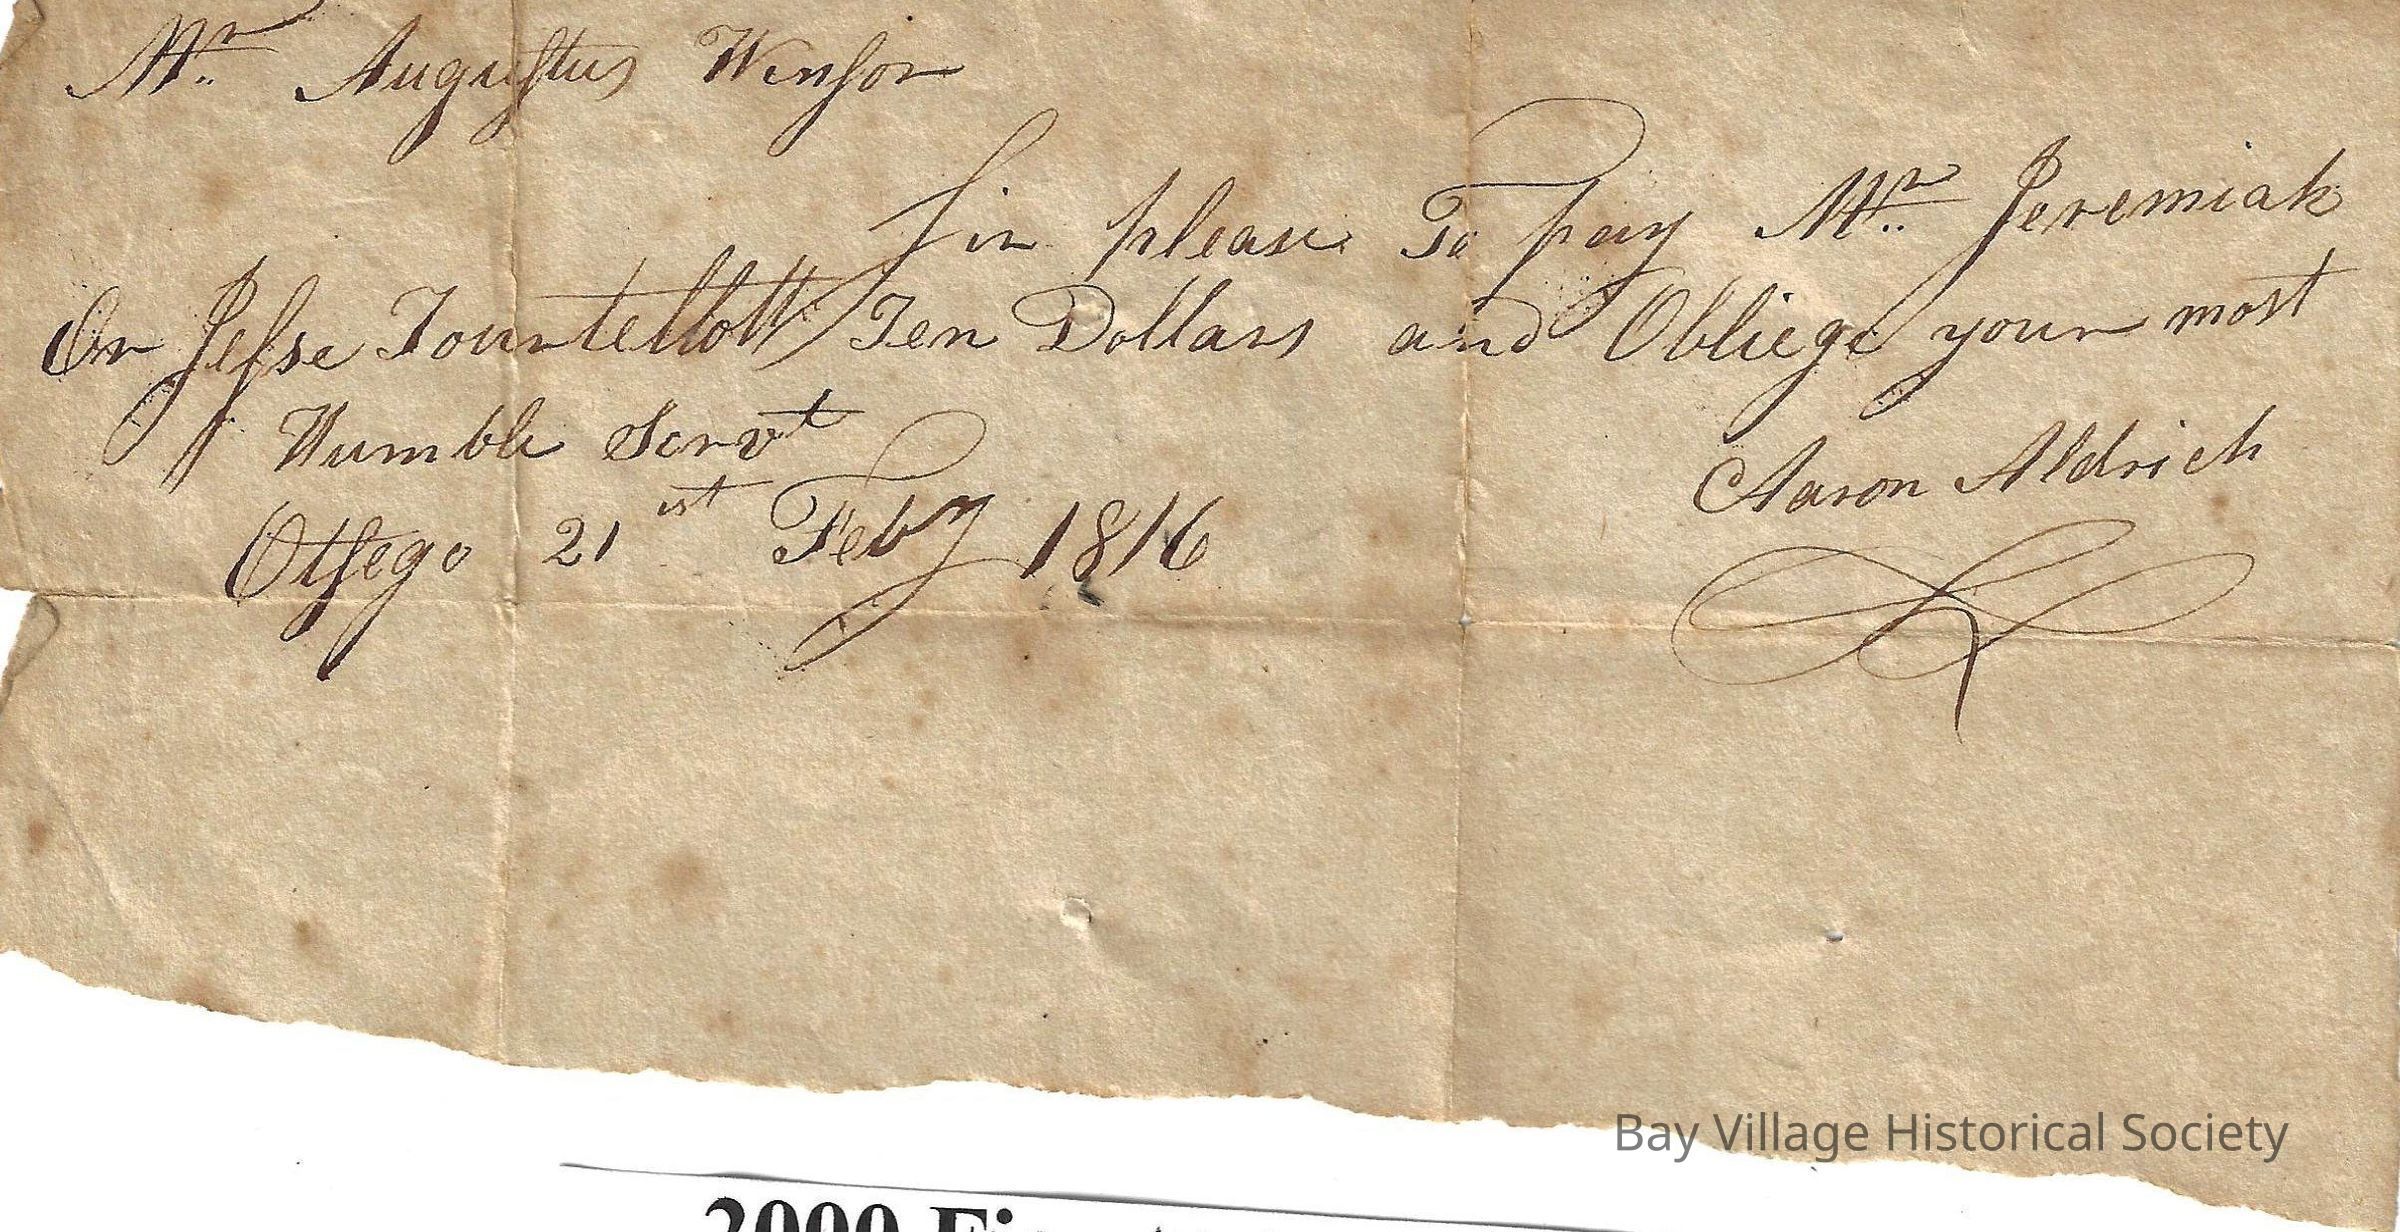 Mr. Augustus Winsor
Sir please To pay Mr. Jeremiah
Or Jesse Tourtellott Ten Dollars and Obliege your most
Humble Servt
Aaron Aldrich
Otsego 21st Feby 1816
Bay Village Historical Society
2000